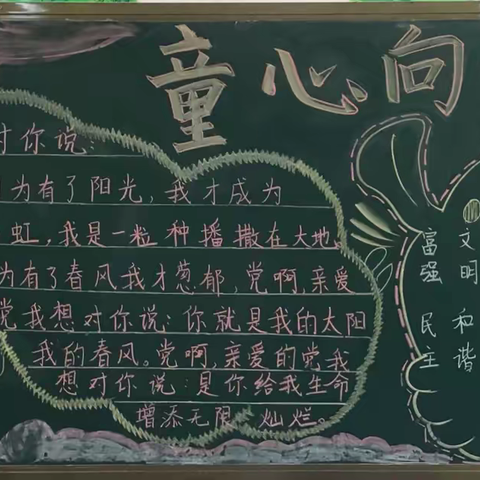 童心向
对你说：
为有了阳光，我才成为
虹，我是一粒种播撒在大地。
为有了春风我才葱郁，党啊，亲爱
党我想对你说：你就是我的太阳
我的春风。党啊，亲爱的党我
想对你说：是你给我生命
增添无限 灿烂。
富强 民主
文明 和谐